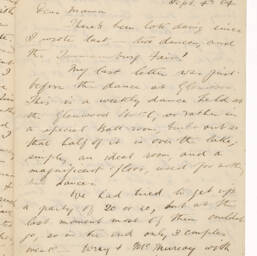 Sept. 4th 04
Dear Mama
There's been lots doing since
I wrote last, two dances, and
the Fair!
My last letter was just
before the dance at Glenwood
This is a weekly dance held at
the Glenwood Hotel, or rather in
a special Ball room, built out so
that half of it is over the lake,
simply an ideal room and a
magnificent floor, used for nothing
but dances.
We had tried to get up
a party of 20 or so, but at the
last moment most of them couldn't
go, so in the end only 3 couples
went. Wray & McMurray with